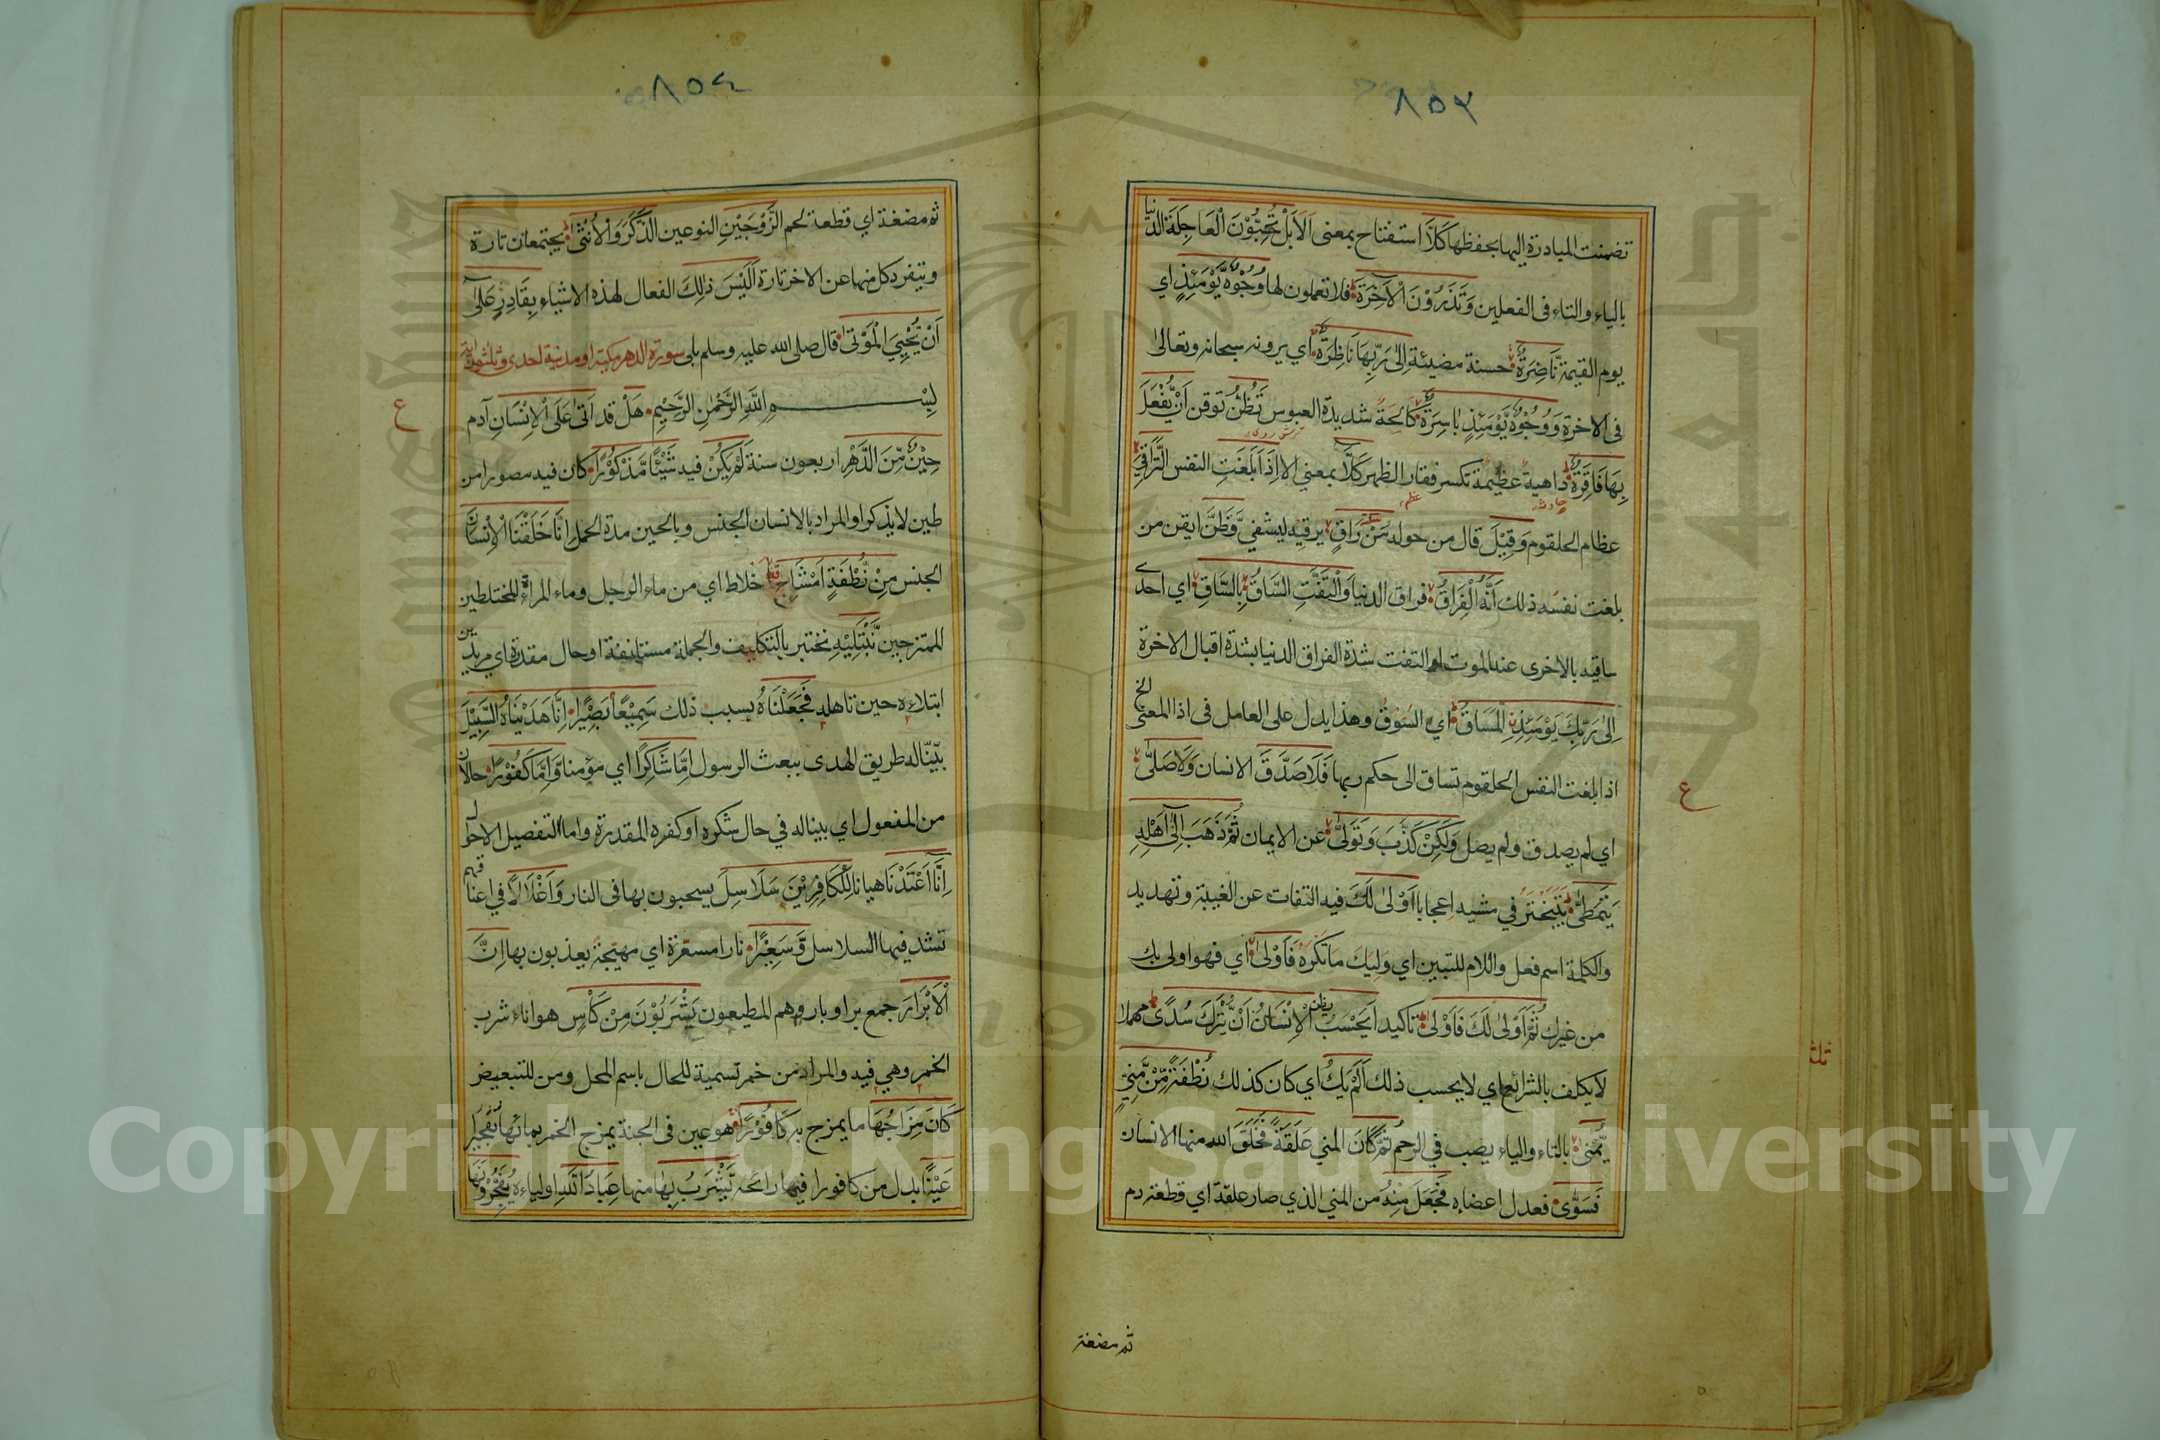 ٨٥٣
تضمنت المبادرة اليها بحفظها كَلَّا استفتاح بمعنى الا بَلْ تُحِبُّوْنَ الْعَاجِلَةَ الدنيا
بالياء والتاء فى الفعلين وَتَذَرُوْنَ الْآخِرَةَ فلا تعملون لها وُجُوْهٌ يَّوْمَئِذٍ اي
يوم القيمة نَّاضِرَةٌ حسنة مضيئة اِلٰى رَبِّهَا نَاظِرَةٌ اي يرونه سبحانه وتعالىٰ
فى الاخرة وَوُجُوْهٌ يَّوْمَئِذٍ بَاسِرَةٌ كالحة شديدة العبوس تَظُنُّ توقن اَنْ يُّفْعَلَ
بِهَا فَاقِرَةٌ داهية عظيمة تكسر فقار الظهر كَلَّا بمعنى الا اِذَا بَلَغَتِ النفس التَّرَاقِيَ
عظام الحلقوم وَقِيْلَ قال من حوله مَنْ رَاقٍ يرقيه ليشفي وَظَنَّ ايقن من
بلغت نفسه ذلك اَنَّهُ الْفِرَاقُ فراق الدنيا وَالْتَفَّتِ السَّاقُ بِالسَّاقِ اي احدى
ساقيه بالاخرى عند الموت او التفت شدة الفراق الدنيا بشدة اقبال الاخرة
اِلٰى رَبِّكَ يَوْمَئِذِنِ الْمَسَاقُ اي السوق وهذا يدل على العامل فى اذا المعنى الخ
اذا بلغت النفس الحلقوم تساق الى حكم ربها فَلَا صَدَّقَ الانسان وَلَا صَلّٰى
اي لم يصدق ولم يصل وَلٰكِنْ كَذَّبَ وَتَوَلّٰى عن الايمان ثُمَّ ذَهَبَ اِلٰى اَهْلِهٖ
يَتَمَطّٰى يتبختر في مشيه اعجابا اَوْلٰى لَكَ فيه التفات عن الغيبة وتهديد
والكلمة اسم فعل واللام للتبيين اي وليك ما تكره فَاَوْلٰى اي فهو اولى بك
من غيرك ثُمَّ اَوْلٰى لَكَ فَاَوْلٰى تاكيد اَيَحْسَبُ يظن الْاِنْسَانُ اَنْ يُّتْرَكَ سُدًى مهملا
لا يكلف بالشرائع اي لا يحسب ذلك اَلَمْ يَكُ اي كان كذلك نُطْفَةً مِّنْ مَّنِيٍّ
يُّمْنٰى بالتاء والياء يصب في الرحم ثُمَّ كَانَ المني عَلَقَةً فَخَلَقَ الله منها الانسان
فَسَوّٰى فعدل اعضاءه فَجَعَلَ مِنْهُ من المني الذي صار علقة اي قطعة دم
ثم مضغة
ع
ثلث
٨٥٤
ثم مضغة اي قطعة لحم الزَّوْجَيْنِ النوعين الذَّكَرَ وَالْاُنْثٰى يجتمعان تارة
وينفرد كل منهما عن الاخر تارة اَلَيْسَ ذٰلِكَ الفعال لهذه الاشياء بِقَادِرٍ عَلٰى
اَنْ يُّحْيِيَ الْمَوْتٰى قال صلى الله عليه وسلم بلى سورة الدهر مكية او مدنية احدى وثلثون اية
بِسْــــمِ اللهِ الرَّحْمٰنِ الرَّحِيْمِ هَلْ قد اَتٰى عَلَى الْاِنْسَانِ آدم
حِيْنٌ مِّنَ الدَّهْرِ اربعون سنة لَمْ يَكُنْ فيه شَيْئًا مَّذْكُوْرًا كان فيه مصورا من
طين لا يذكر او المراد بالانسان الجنس وبالحين مدة الحمل اِنَّا خَلَقْنَا الْاِنْسَانَ
الجنس مِنْ نُّطْفَةٍ اَمْشَاجٍ خلاط اي من ماء الرجل وماء المرأة المختلطين
الممتزجين نَّبْتَلِيْهِ نختبر بالتكليف والجملة مستانفة او حال مقدرة اي مريدين
ابتلاءه حين تاهله فَجَعَلْنَاهُ بسبب ذلك سَمِيْعًا بَصِيْرًا اِنَّا هَدَيْنَاهُ السَّبِيْلَ
بيّنا له طريق الهدى ببعث الرسول اِمَّا شَاكِرًا اي مؤمنا وَّاِمَّا كَفُوْرًا حالان
من المفعول اي بينا له في حال شكره او كفره المقدرة واما التفصيل الاحوال
اِنَّا اَعْتَدْنَا هيانا لِلْكَافِرِيْنَ سَلَاسِلَ يسحبون بها فى النار وَاَغْلَالًا في اعناقهم
تشد فيها السلاسل وَّسَعِيْرًا نارا مسعرة اي مهيجة يعذبون بها اِنَّ
الْاَبْرَارَ جمع بر او بار وهم المطيعون يَشْرَبُوْنَ مِنْ كَأْسٍ هو اناء شرب
الخمر وهي فيه والمراد من خمر تسمية للحال باسم المحل ومن للتبعيض
كَانَ مِزَاجُهَا ما يمزج به كَافُوْرًا هو عين فى الجنة يمزج الخمر بمائها تفجيرا
عَيْنًا بدل من كافورا فيها رائحته يَّشْرَبُ بِهَا منها عِبَادُ اللهِ اولياءه يُفَجِّرُوْنَهَا
ع
Copyright © King Saud University